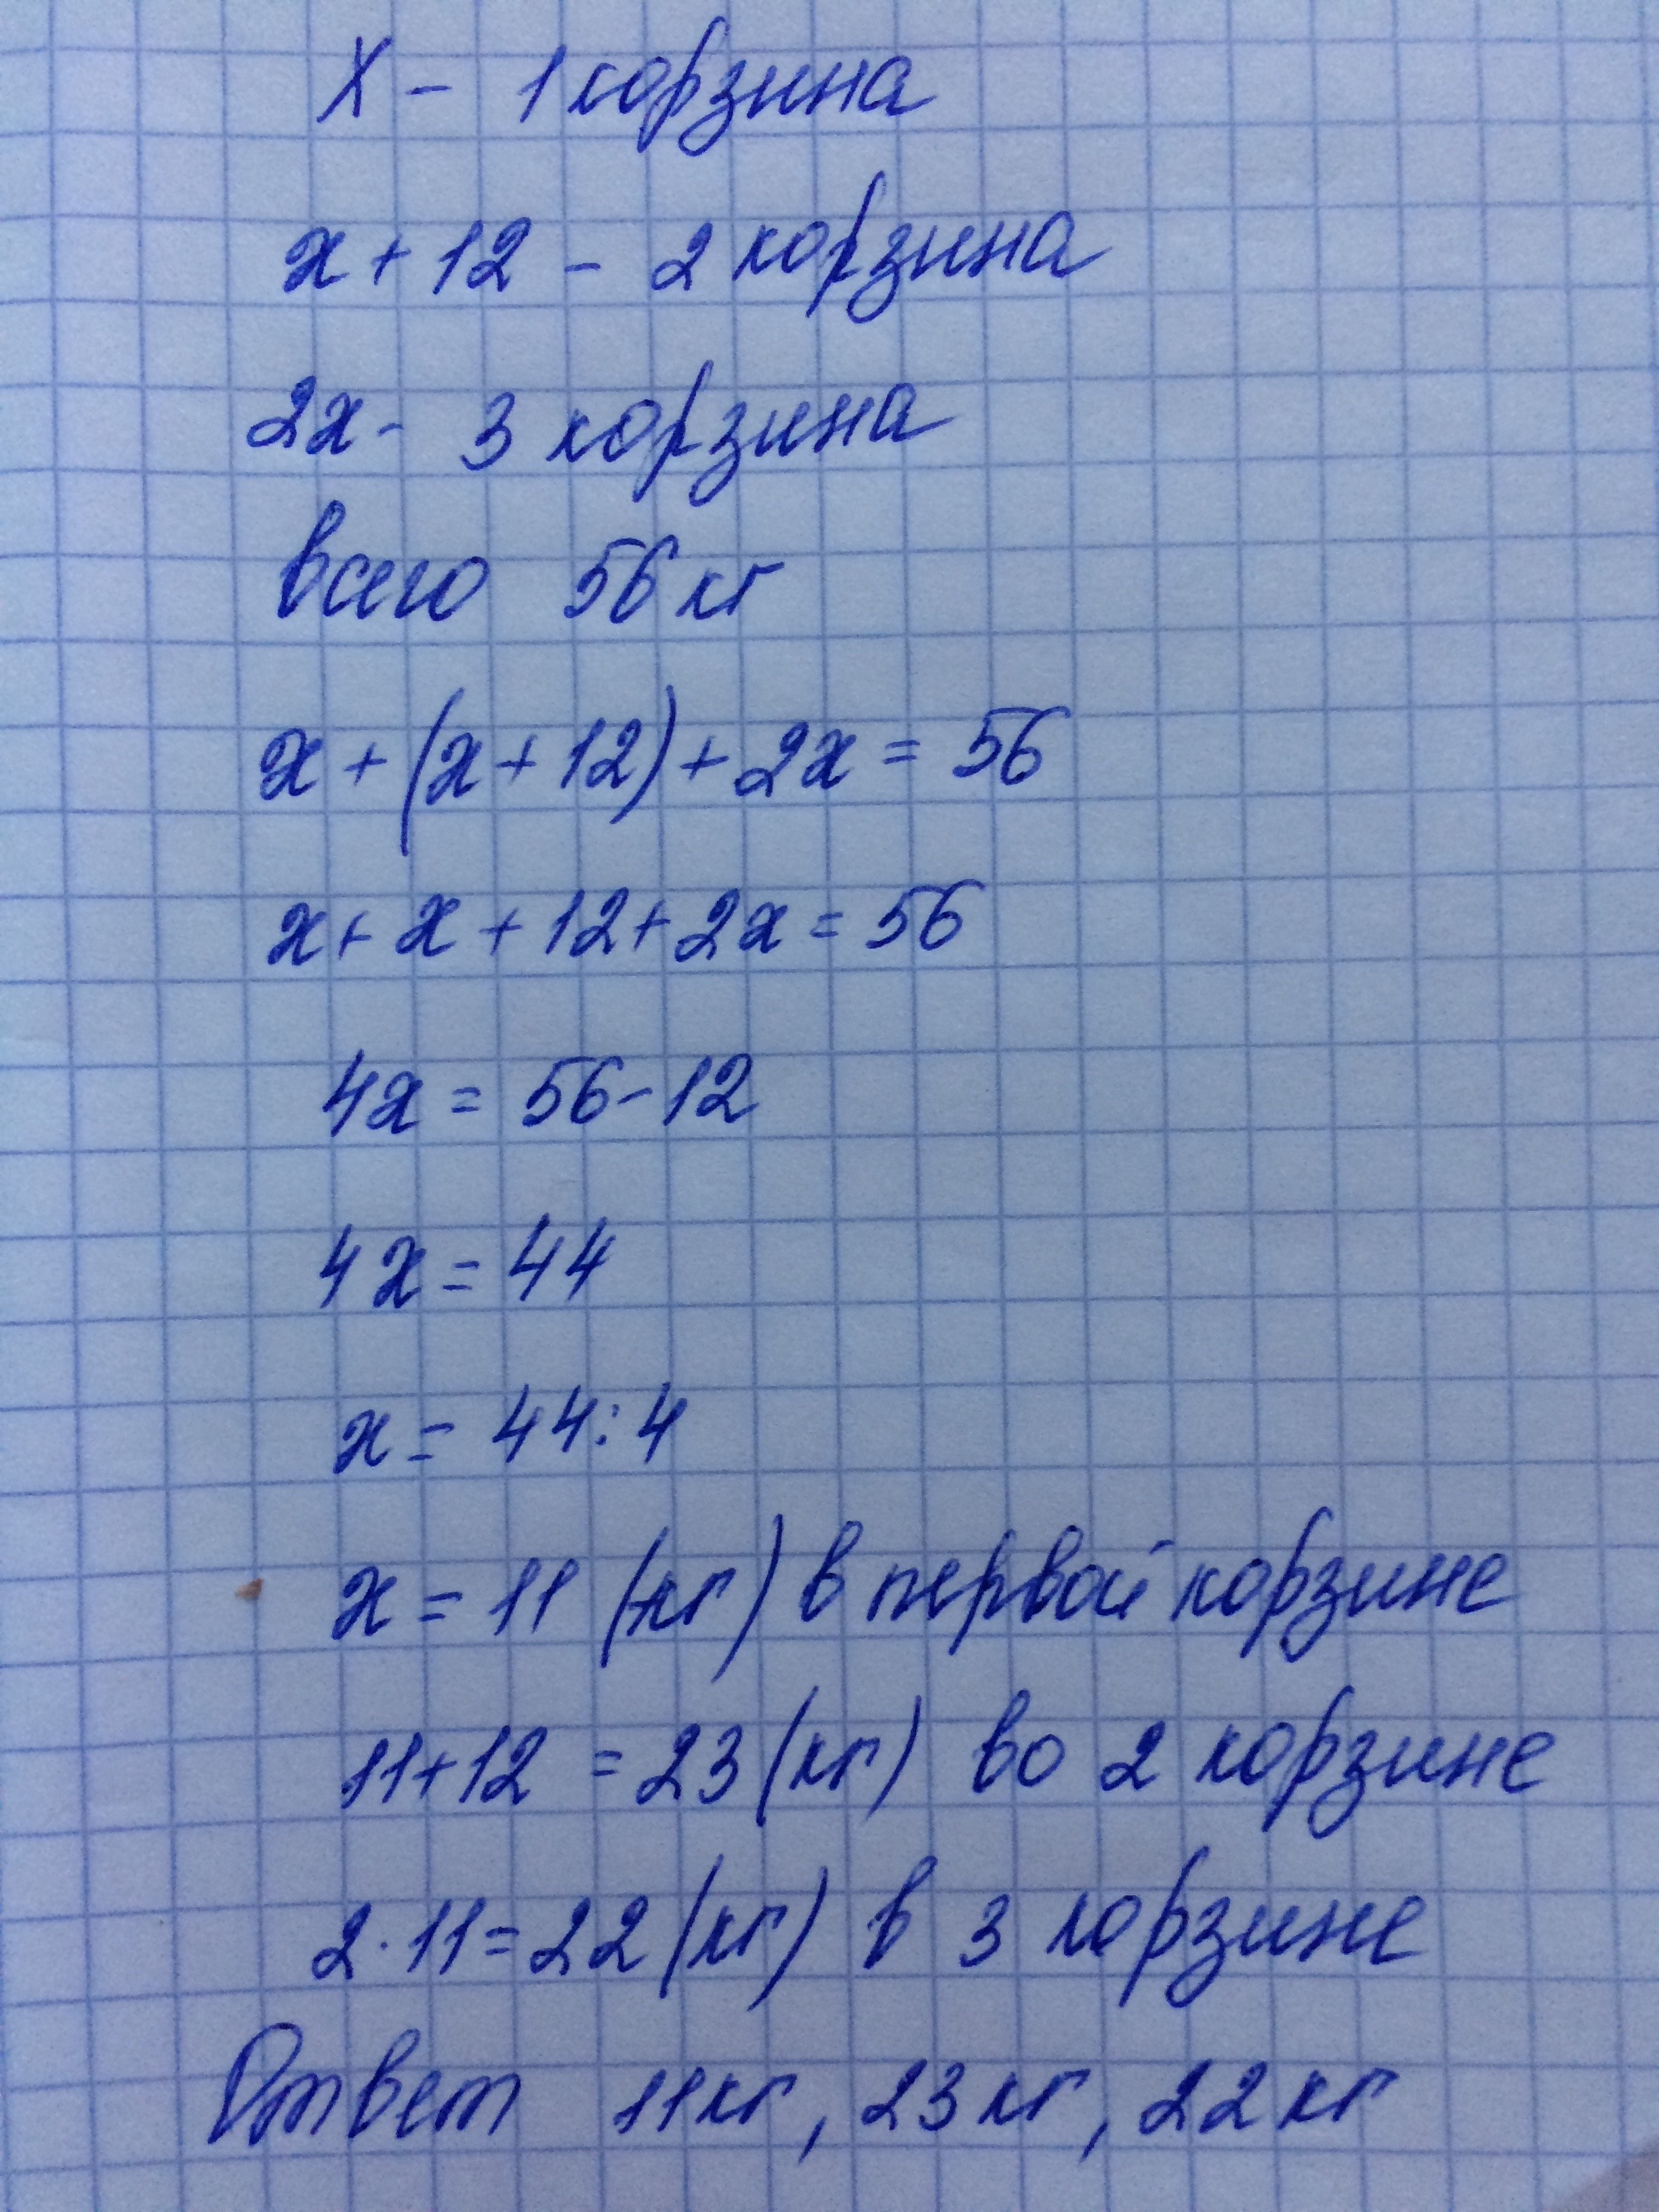 х - 1 корзина
х + 12 - 2 корзина
2х - 3 корзина
всего 56 кг
х + (х + 12) + 2х = 56
х + х + 12 + 2х = 56
4х = 56 - 12
4х = 44
х = 44 : 4
х = 11 (кг) в первой корзине
11 + 12 = 23 (кг) во 2 корзине
2 · 11 = 22 (кг) в 3 корзине
Ответ 11кг, 23кг, 22кг